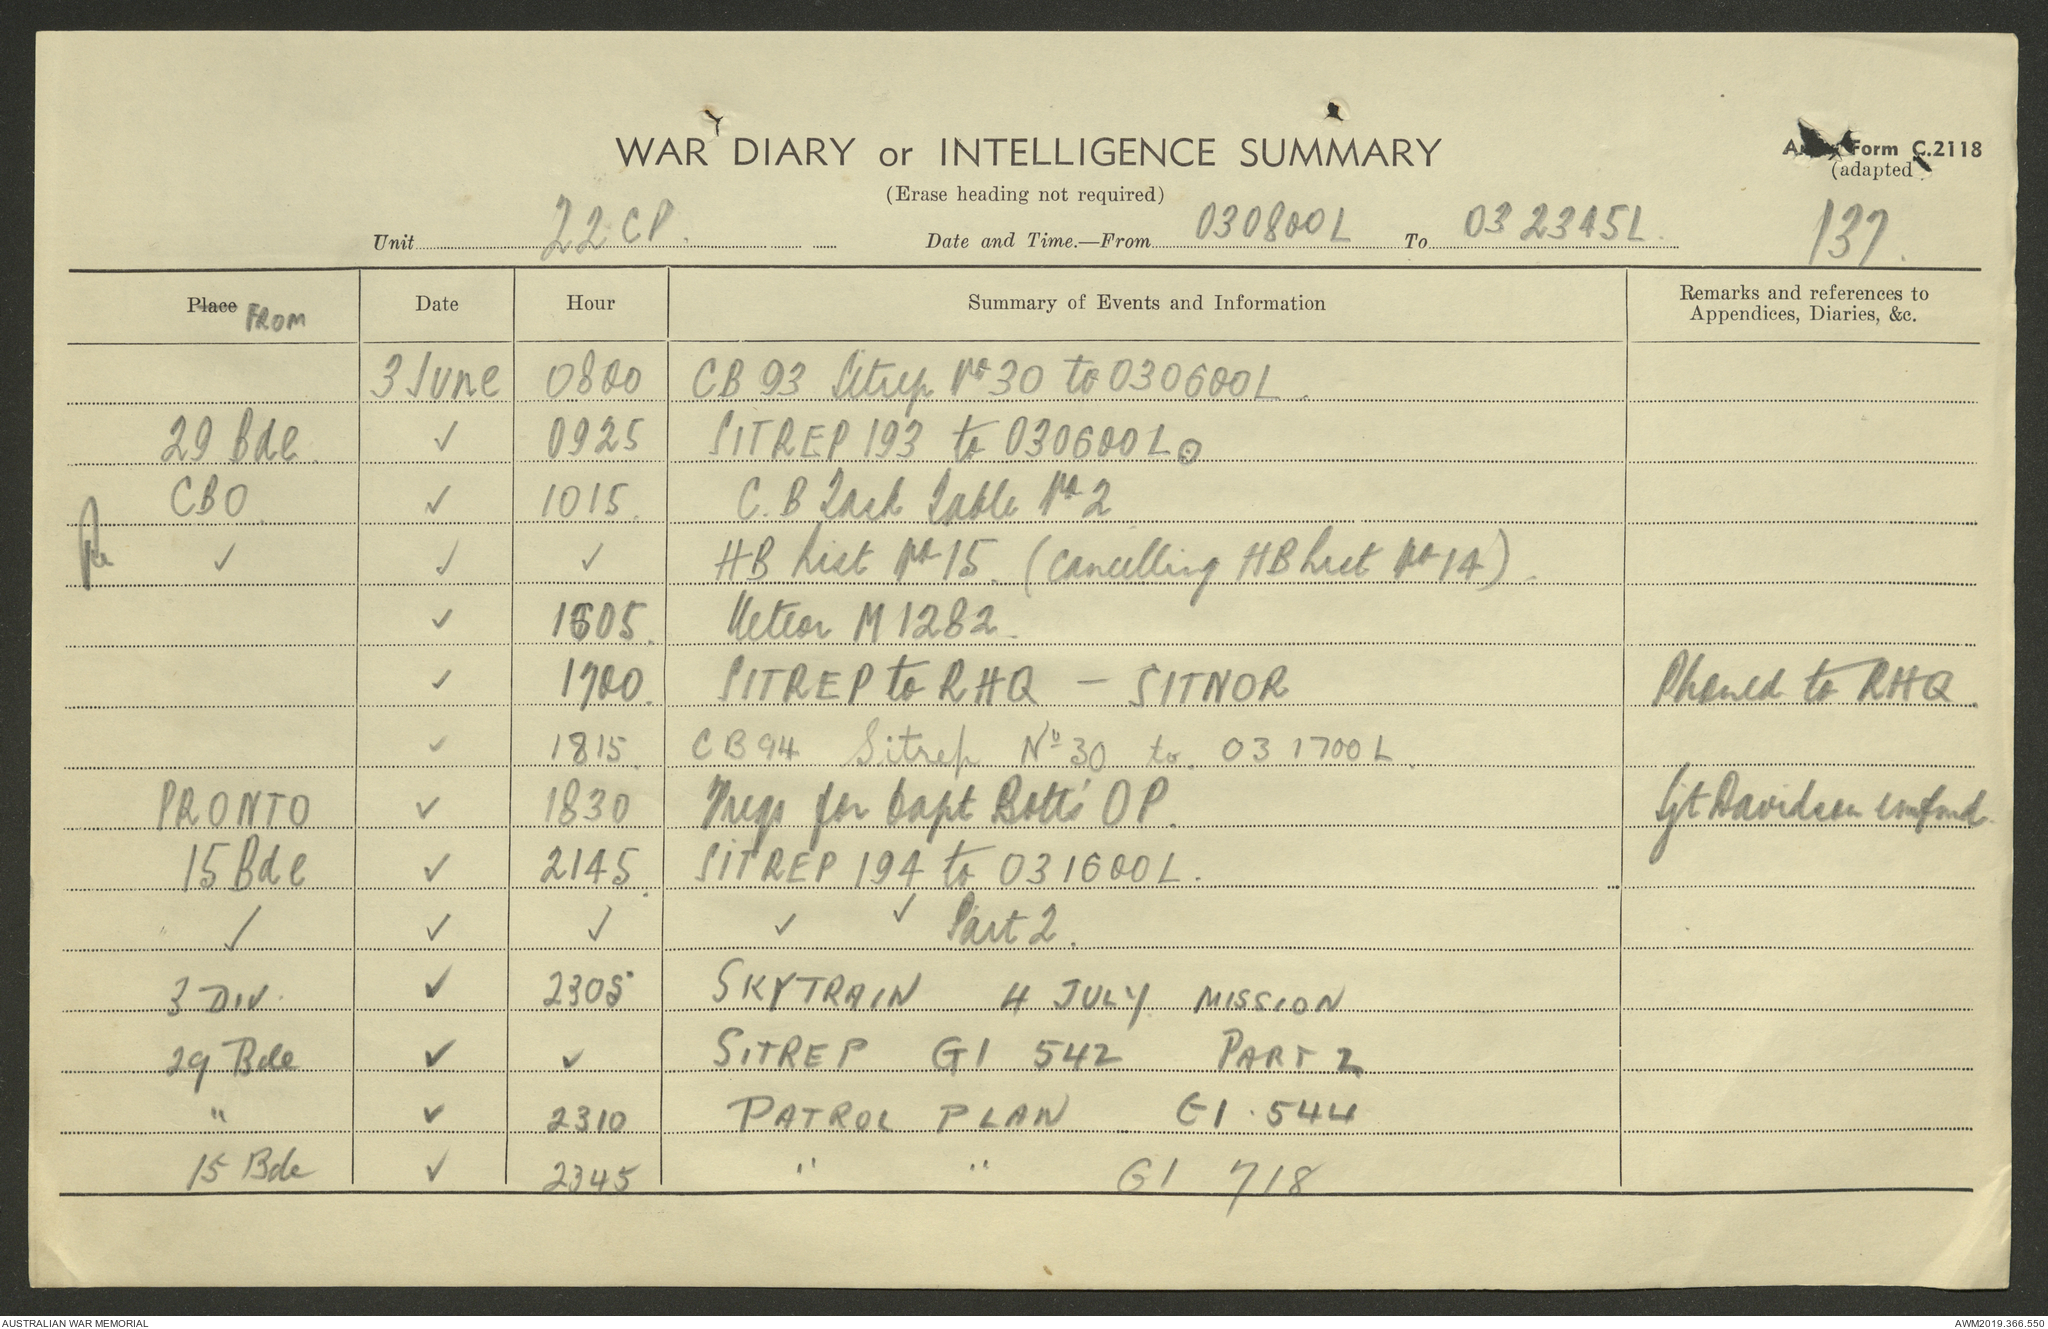 WAR DIARY or INTELLIGENCE SUMMARY
Army Form C.2118
(Erase heading not required)
(adapted)
Unit 22 CP. Date and Time.—From 030800L To 032345L.
137.
Place FROM Date Hour Summary of Events and Information Remarks and references to
Appendices, Diaries, &c.
3 June 0800 CB 93 Sitrep No 30 to 030600L.
29 Bde ✓ 0925 SITREP 193 to 030600L.
CBO ✓ 1015 C.B Task Table No 2
✓ ✓ ✓ HB List No 15. (cancelling HB List No 14).
✓ 1605. Meteor M 1282
✓ 1700. SITREP to RHQ — SITNOR Phoned to RHQ
✓ 1815. CB 94 Sitrep No 30 to. 031700L.
PRONTO ✓ 1830 Freqs for Capt Bott's OP. Sjt Davidson
15 Bde ✓ 2145. SITREP 194 to 031600L.
✓ ✓ ✓ ✓ ✓ Part 2.
3 DIV. ✓ 2305 SKYTRAIN 4 JULY MISSION
29 Bde ✓ ✓ SITREP GI 542 PART 2
" ✓ 2310 PATROL PLAN GI. 544
15 Bde ✓ 2345 " " GI 718
AUSTRALIAN WAR MEMORIAL
AWM2019.366.550